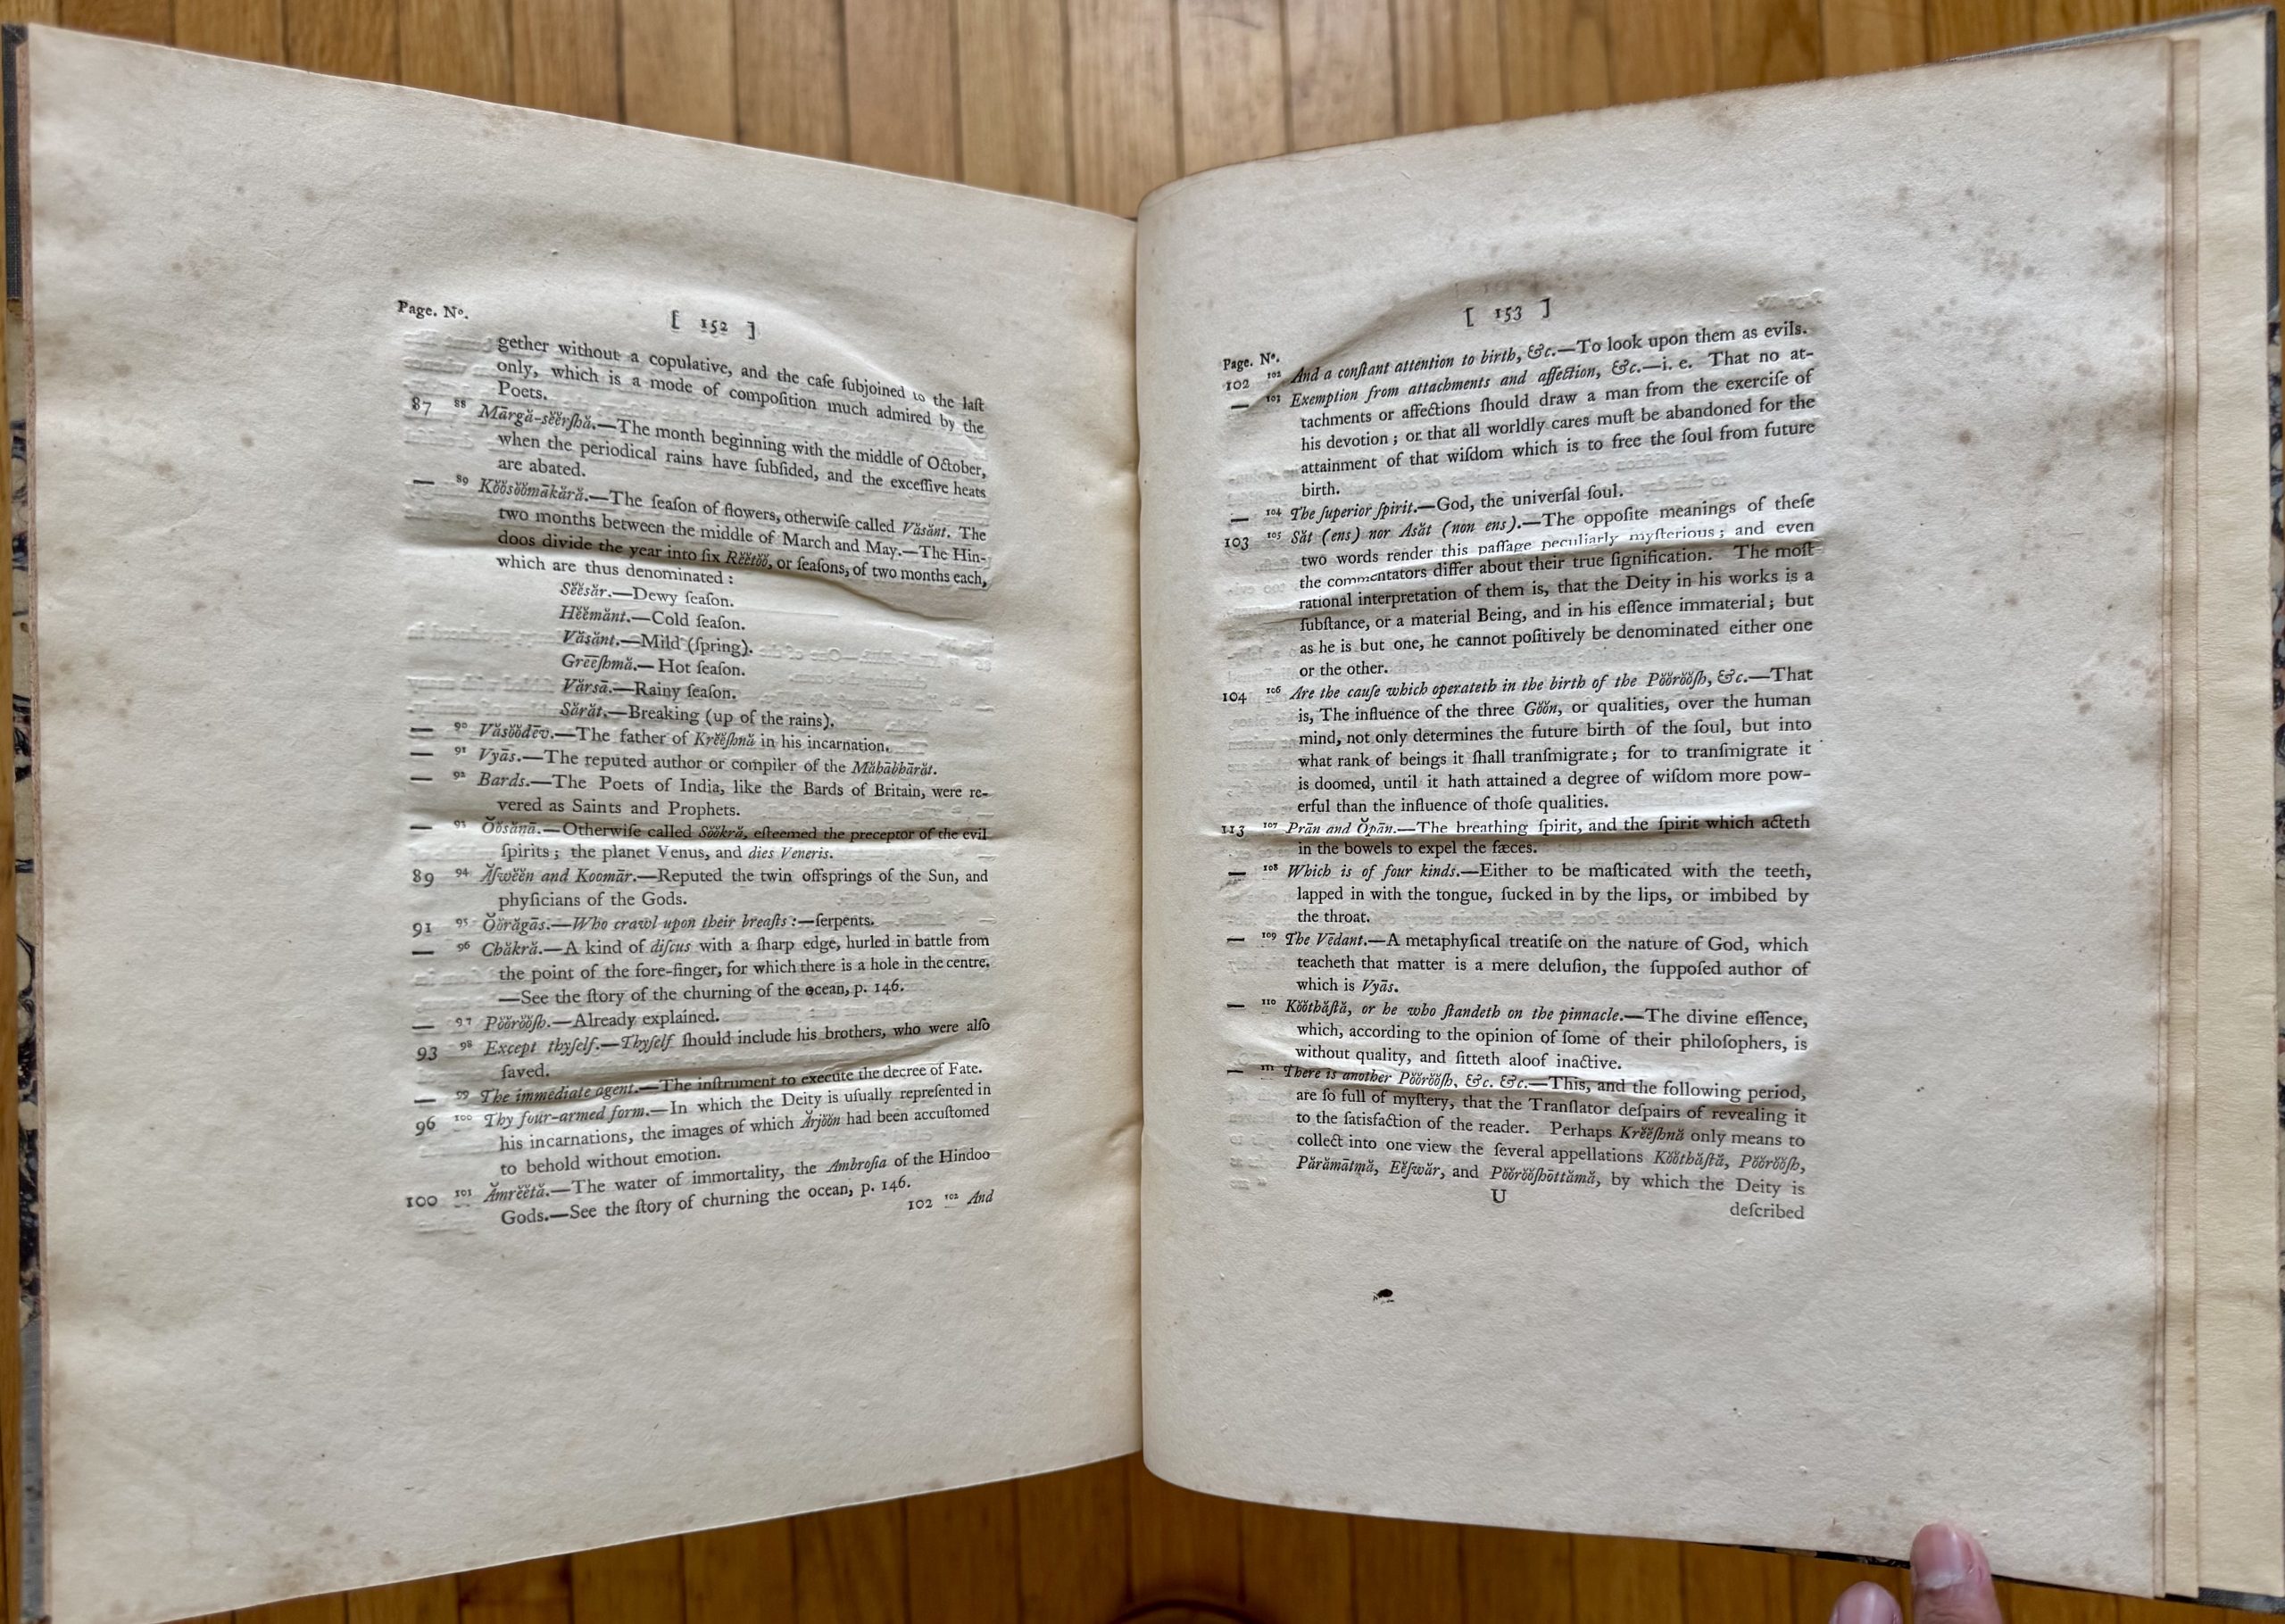 [ 152 ]
Page. Nº.
gether without a copulative, and the caſe ſubjoined to the laſt
only, which is a mode of compoſition much admired by the
Poets.
87 ⁸⁸ Mārgă-sĕĕrſhă.—The month beginning with the middle of October,
when the periodical rains have ſubſided, and the exceſſive heats
are abated.
— ⁸⁹ Kŏŏsŏŏmākără.—The ſeaſon of flowers, otherwiſe called Văsănt. The
two months between the middle of March and May.—The Hin-
doos divide the year into ſix Rĕĕtŏŏ, or ſeaſons, of two months each,
which are thus denominated :
Sĕĕsăr.—Dewy ſeaſon.
Hĕĕmănt.—Cold ſeaſon.
Văsănt.—Mild (ſpring).
Grēēſhmă.—Hot ſeaſon.
Vărsā.—Rainy ſeaſon.
Sărăt.—Breaking (up of the rains).
— ⁹⁰ Văsŏŏdēv.—The father of Krĕĕſhnă in his incarnation.
— ⁹¹ Vyās.—The reputed author or compiler of the Măhābhārăt.
— ⁹² Bards.—The Poets of India, like the Bards of Britain, were re-
vered as Saints and Prophets.
— ⁹³ Ŏŏsănā.—Otherwiſe called Sŏŏkră, eſteemed the preceptor of the evil
ſpirits ; the planet Venus, and dies Veneris.
89 ⁹⁴ Ăſwĕĕn and Koomār.—Reputed the twin offsprings of the Sun, and
phyſicians of the Gods.
91 ⁹⁵ Ŏŏrăgās.—Who crawl upon their breaſts :—ſerpents.
— ⁹⁶ Chăkră.—A kind of diſcus with a ſharp edge, hurled in battle from
the point of the fore-finger, for which there is a hole in the centre.
—See the ſtory of the churning of the ocean, p. 146.
— ⁹⁷ Pŏŏrŏŏſh.—Already explained.
93 ⁹⁸ Except thyſelf.—Thyſelf ſhould include his brothers, who were alſo
ſaved.
— ⁹⁹ The immediate agent.—The inſtrument to execute the decree of Fate.
96 ¹⁰⁰ Thy four-armed form.—In which the Deity is uſually repreſented in
his incarnations, the images of which Ărjŏŏn had been accuſtomed
to behold without emotion.
100 ¹⁰¹ Ămrĕĕtă.—The water of immortality, the Ambroſia of the Hindoo
Gods.—See the ſtory of churning the ocean, p. 146.
102 ¹⁰² And
[ 153 ]
Page. Nº.
102 ¹⁰² And a conſtant attention to birth, &c.—To look upon them as evils.
— ¹⁰³ Exemption from attachments and affection, &c.—i. e. That no at-
tachments or affections ſhould draw a man from the exerciſe of
his devotion ; or that all worldly cares muſt be abandoned for the
attainment of that wiſdom which is to free the ſoul from future
birth.
— ¹⁰⁴ The ſuperior ſpirit.—God, the univerſal ſoul.
103 ¹⁰⁵ Săt (ens) nor Asăt (non ens).—The oppoſite meanings of theſe
two words render this paſſage peculiarly myſterious ; and even
the commentators differ about their true ſignification. The moſt
rational interpretation of them is, that the Deity in his works is a
ſubſtance, or a material Being, and in his eſſence immaterial ; but
as he is but one, he cannot poſitively be denominated either one
or the other.
104 ¹⁰⁶ Are the cauſe which operateth in the birth of the Pŏŏrŏŏſh, &c.—That
is, The influence of the three Gŏŏn, or qualities, over the human
mind, not only determines the future birth of the ſoul, but into
what rank of beings it ſhall tranſmigrate ; for to tranſmigrate it
is doomed, until it hath attained a degree of wiſdom more pow-
erful than the influence of thoſe qualities.
113 ¹⁰⁷ Prān and Ŏpān.—The breathing ſpirit, and the ſpirit which acteth
in the bowels to expel the fæces.
— ¹⁰⁸ Which is of four kinds.—Either to be maſticated with the teeth,
lapped in with the tongue, ſucked in by the lips, or imbibed by
the throat.
— ¹⁰⁹ The Vēdant.—A metaphyſical treatiſe on the nature of God, which
teacheth that matter is a mere deluſion, the ſuppoſed author of
which is Vyās.
— ¹¹⁰ Kŏŏthăſtă, or he who ſtandeth on the pinnacle.—The divine eſſence,
which, according to the opinion of ſome of their philoſophers, is
without quality, and ſitteth aloof inactive.
— ¹¹¹ There is another Pŏŏrŏŏſh, &c. &c.—This, and the following period,
are ſo full of myſtery, that the Tranſlator deſpairs of revealing it
to the ſatisfaction of the reader. Perhaps Krĕĕſhnă only means to
collect into one view the ſeveral appellations Kŏŏthăſtă, Pŏŏrŏŏſh,
Părămātmă, Eĕſwăr, and Pŏŏrŏŏſhōttămă, by which the Deity is
U
deſcribed